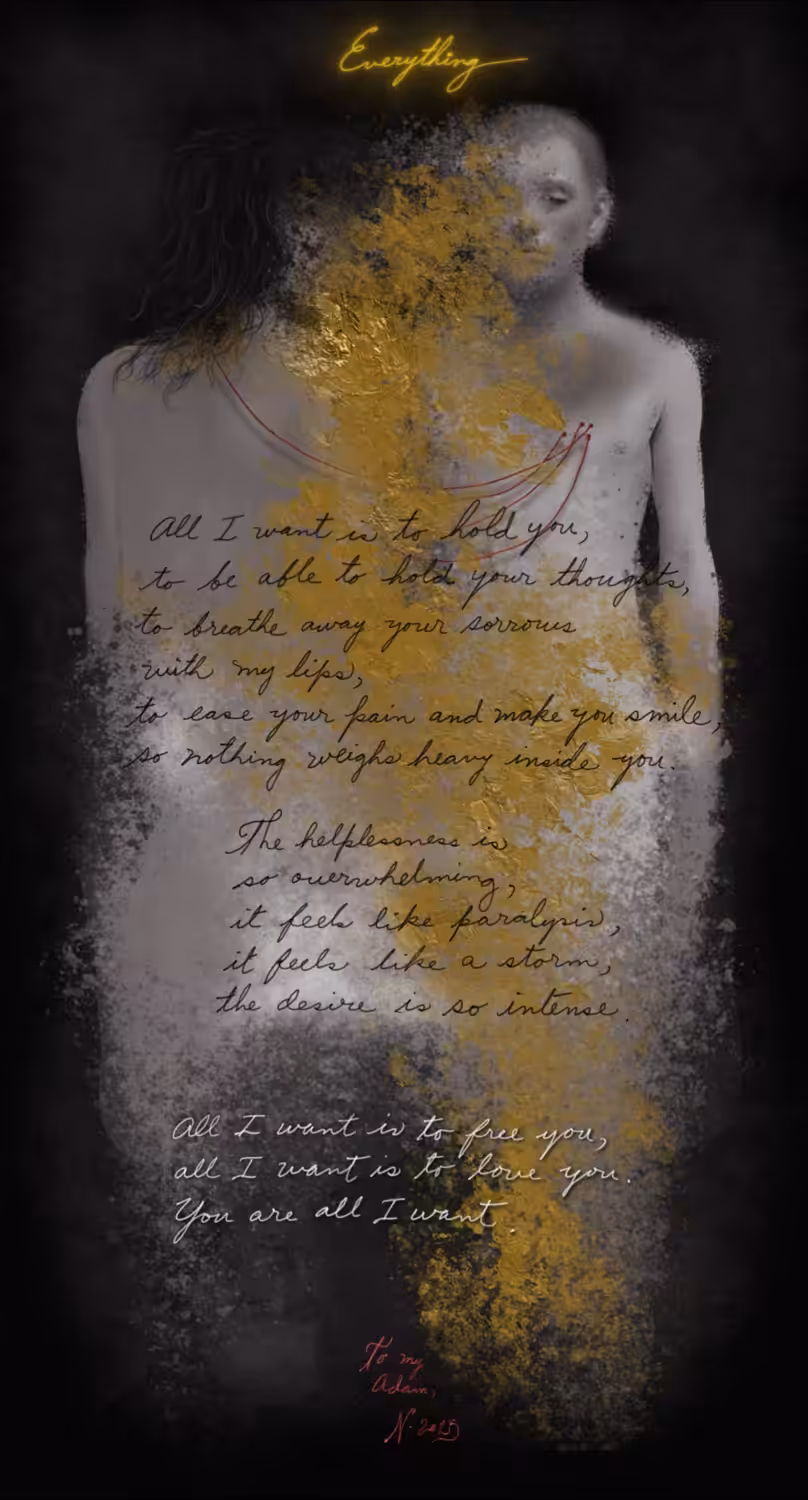 Everything
All I want is to hold you,
to be able to hold your thoughts,
to breathe away your sorrows
with my lips,
to ease your pain and make you smile,
so nothing weighs heavy inside you.
The helplessness is
so overwhelming,
it feels like paralysis,
it feels like a storm,
the desire is so intense.
All I want is to free you,
all I want is to love you.
You are all I want.
To my
Adam,
N.